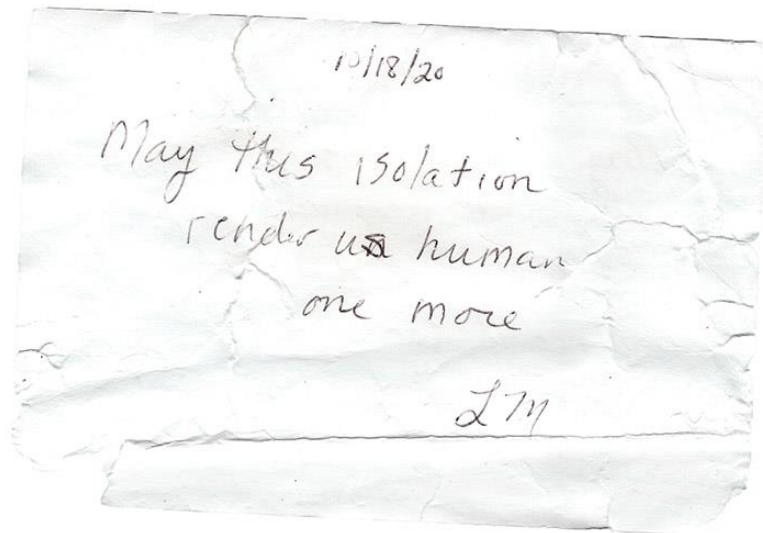 10/18/20
May this isolation
render us human
one more
LM